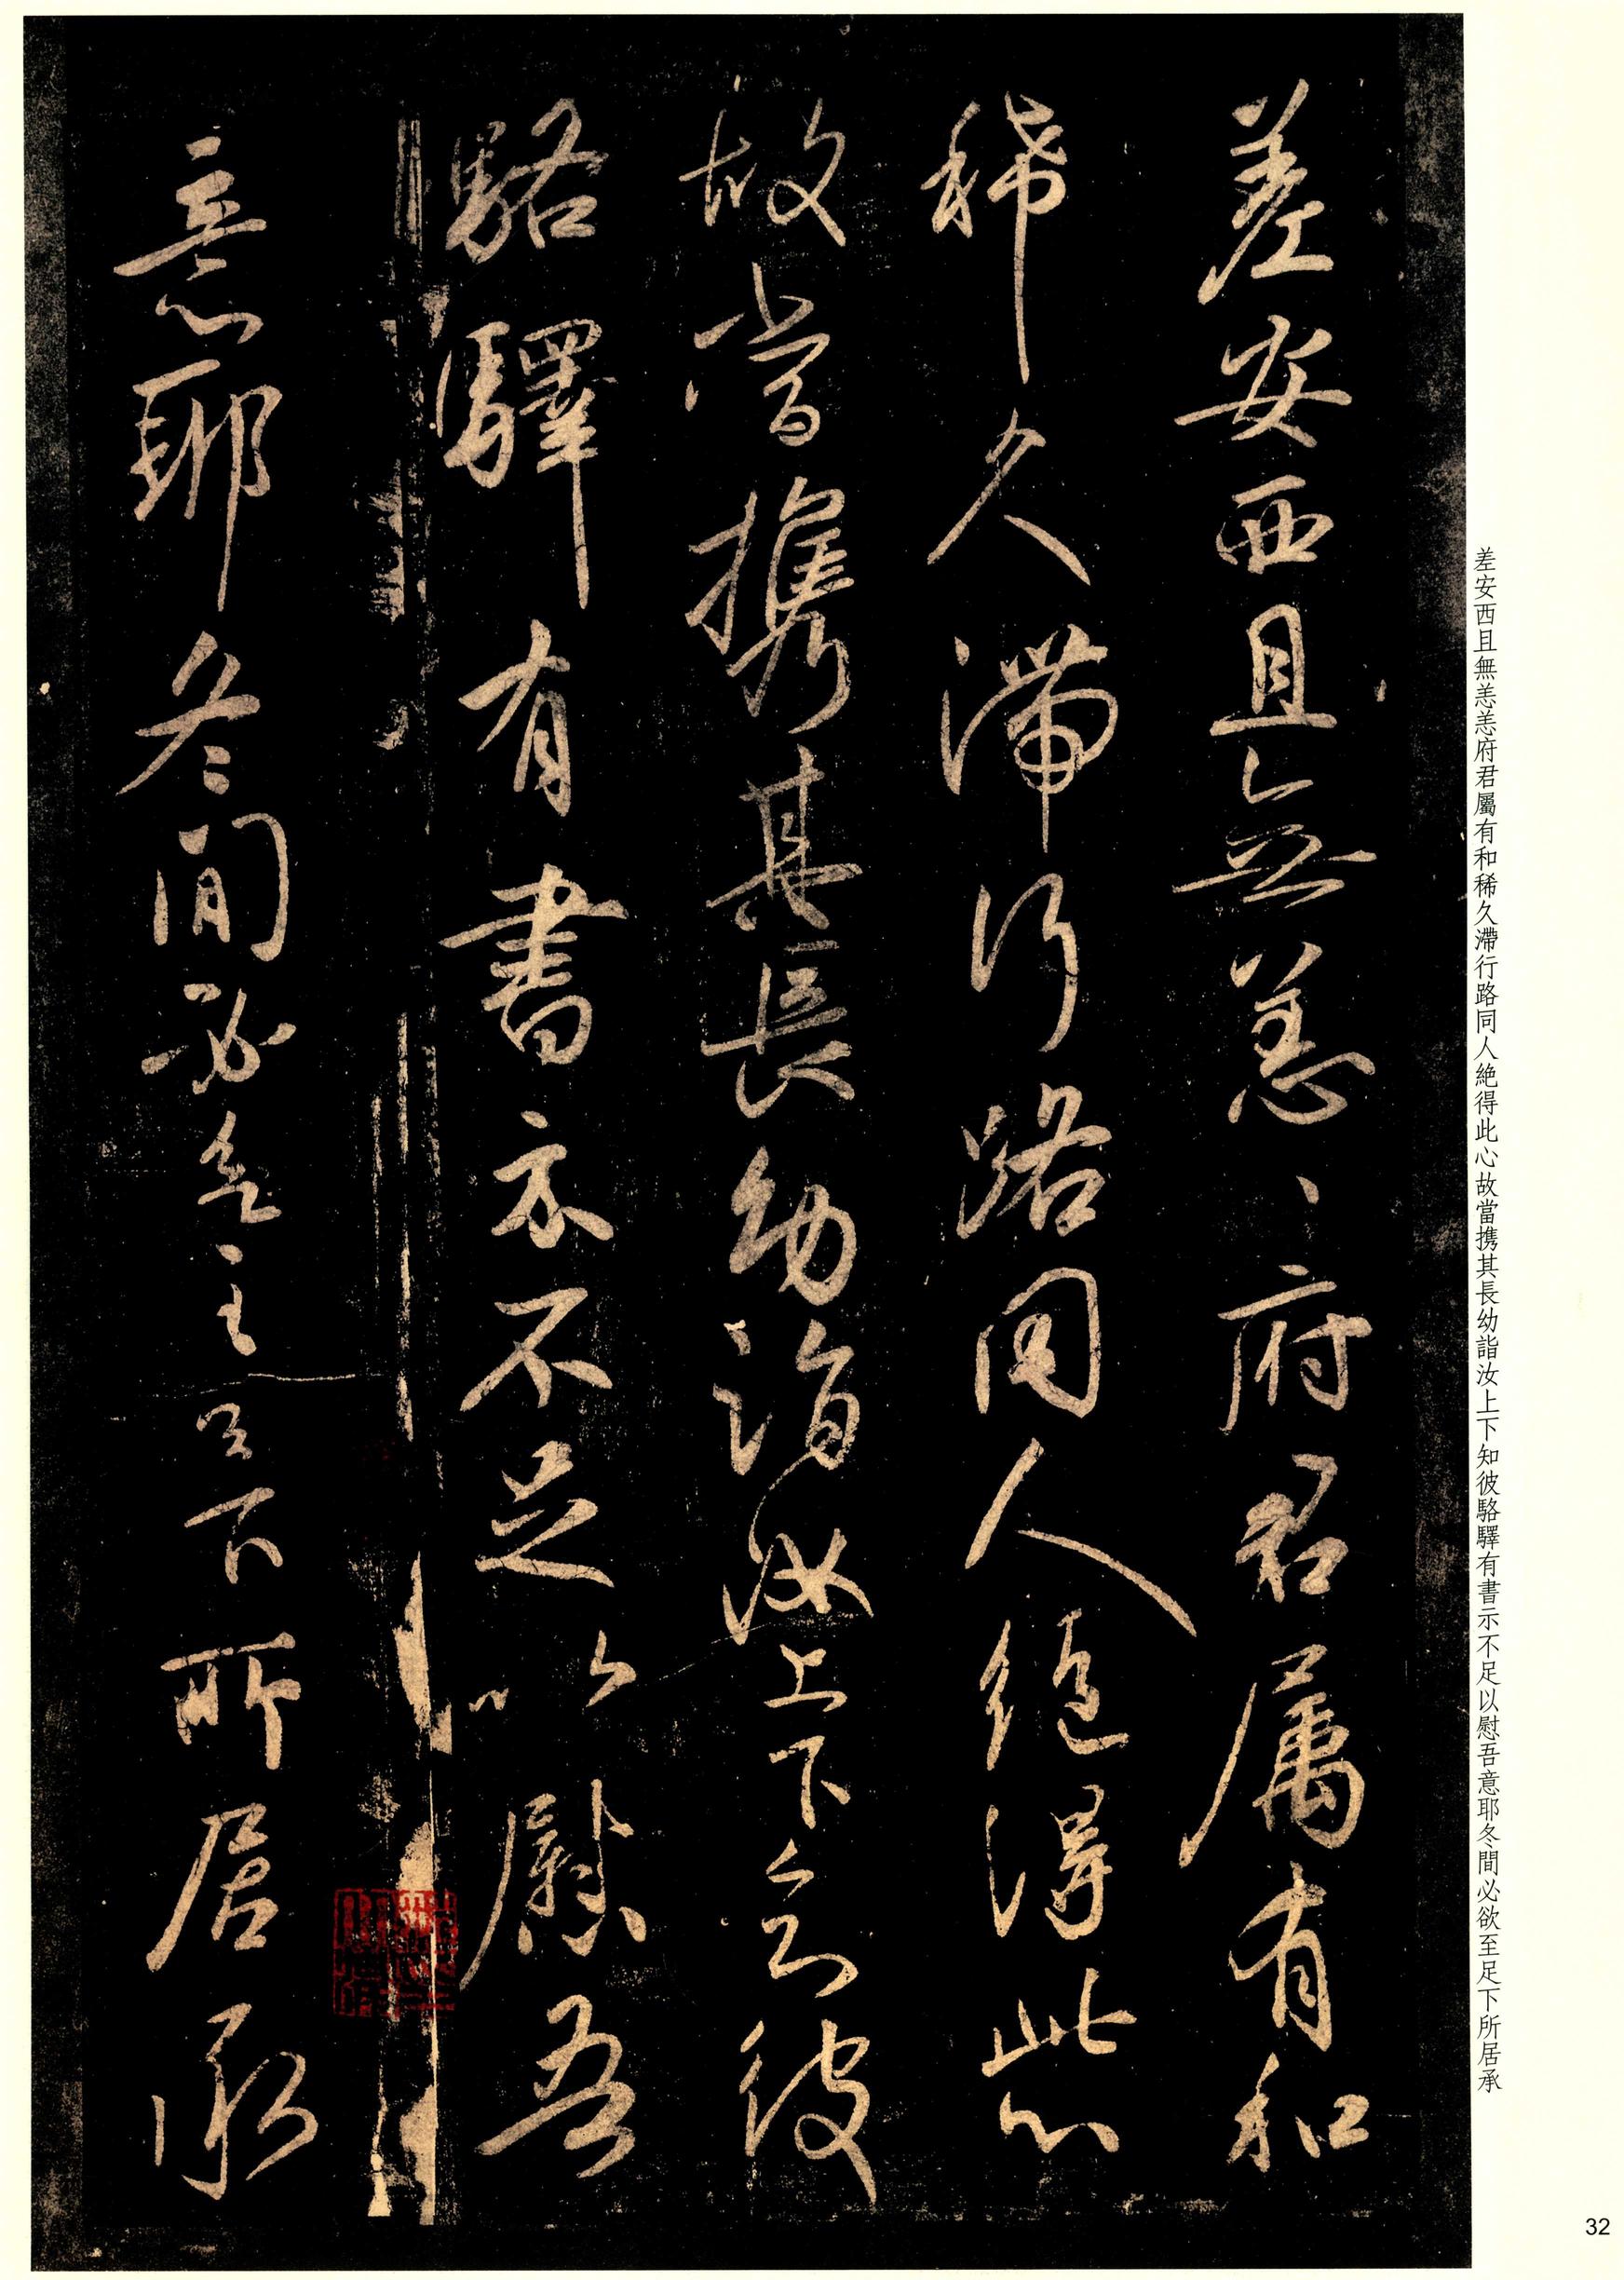 差安西且無恙恙府君屬有和稀久滯行路同人絶得此心故當携其長幼詣汝上下知彼駱驛有書示不足以慰吾意耶冬間必欲至足下所居承
差安西且無恙〻府君属有和
稀久滯行路同人絶得此心
故當携其長幼詣汝上下知彼
駱驛有書示不足以慰吾
意耶冬間必欲至足下所居承
32